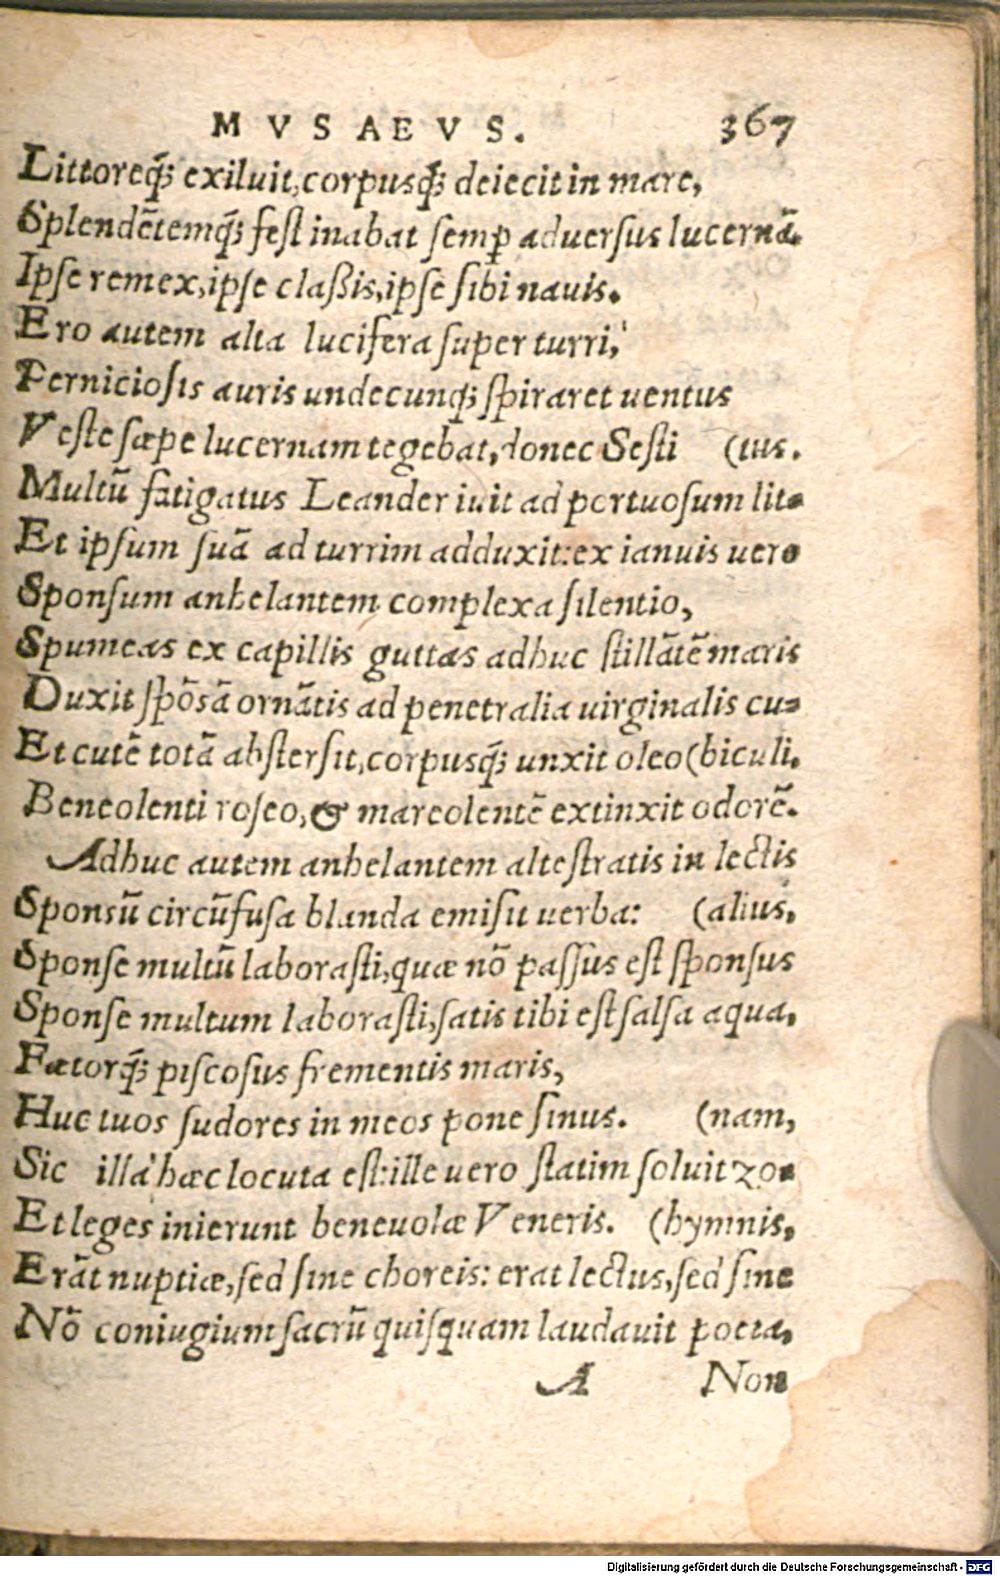 MVSAEVS. 367
Littoreq́; exiluit, corpusq́; deiecit in mare,
Splendẽtemq́; festinabat semꝑ aduersus lucernã.
Ipse remex, ipse claßis, ipse sibi nauis.
Ero autem alta lucifera super turri,
Perniciosis auris undecunq; spiraret uentus
Veste sæpe lucernam tegebat, donec Sesti (tus.
Multũ fatigatus Leander iuit ad portuosum lit-
Et ipsum suã ad turrim adduxit: ex ianuis uero
Sponsum anhelantem complexa silentio,
Spumeas ex capillis guttas adhuc stillãtẽ maris
Duxit spõsã ornãtis ad penetralia uirginalis cu-
Et cutẽ totã abstersit, corpusq́; unxit oleo (biculi.
Beneolenti roseo, & mareolentẽ extinxit odorẽ.
Adhuc autem anhelantem altestratis in lectis
Sponsũ circũfusa blanda emisit uerba: (alius.
Sponse multũ laborasti, quæ nõ passus est sponsus
Sponse multum laborasti, satis tibi est salsa aqua,
Fætorq́; piscosus frementis maris,
Huc tuos sudores in meos pone sinus. (nam,
Sic illa hæc locuta est: ille uero statim soluit zo-
Et leges inierunt beneuolæ Veneris. (hymnis,
Erãt nuptiæ, sed sine choreis: erat lectus, sed sine
Nõ coniugium sacrũ quisquam laudauit poeta,
A Non
Digitalisierung gefördert durch die Deutsche Forschungsgemeinschaft - DFG